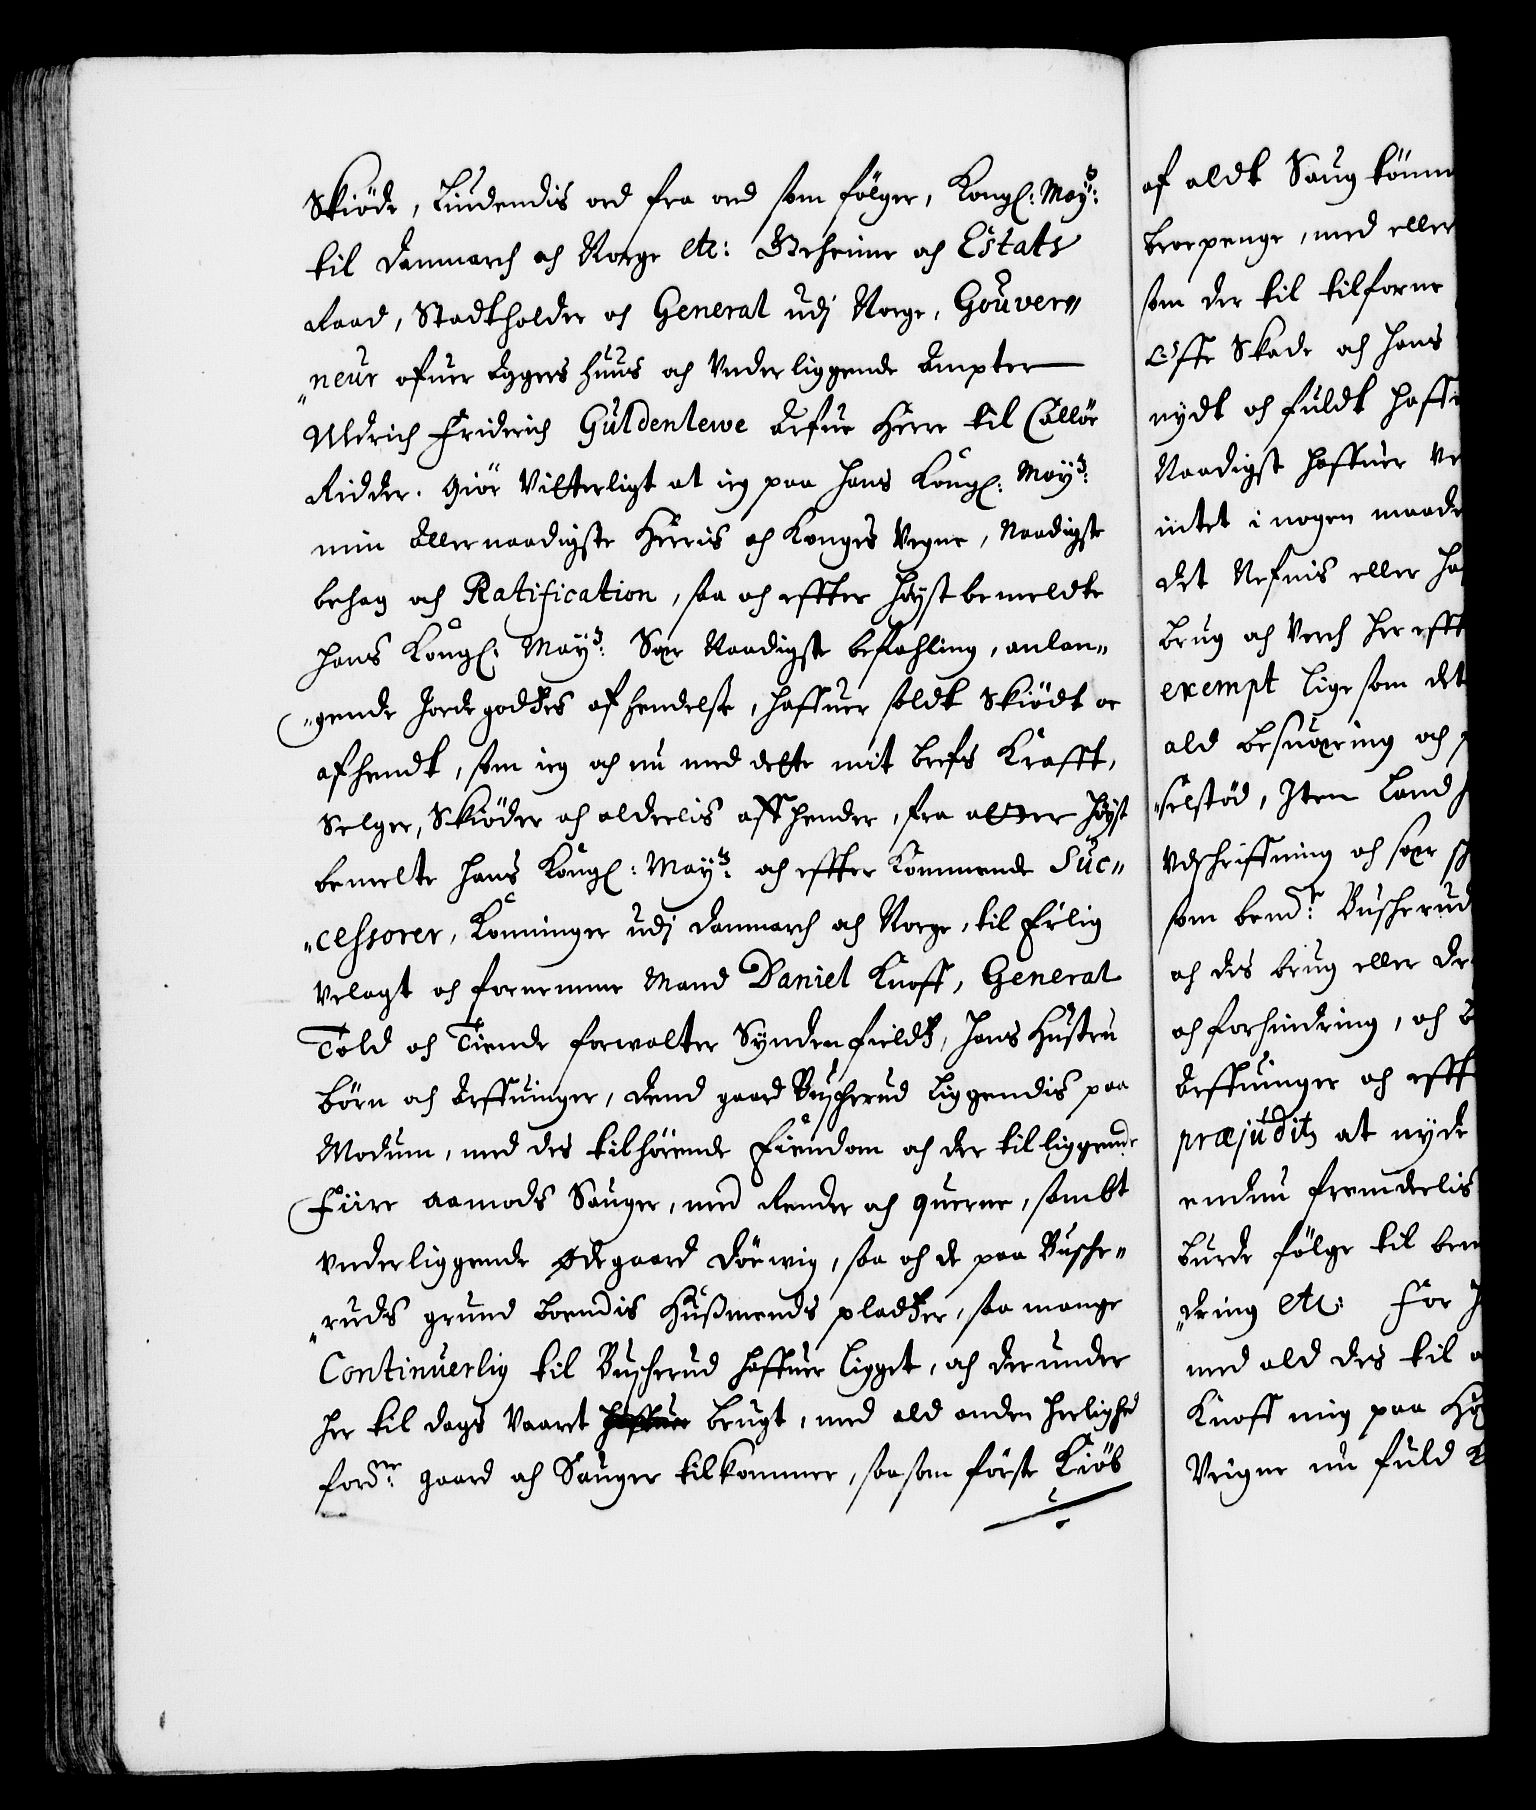 Skiöde, Liudendis ord fra ord som fölger, Kongl: May:ts
til Danmarch och Norge etc: Geheime och Estats
Raad, Stadtholder och General udj Norge, Gouver„
„neur ofuer Aggers huus och Underliggende Ampter
Uldrich Friderich Guldenlewe Arfue Herre til Callöe
Ridder. Giör Vitterligt at ieg paa hans Kongl: May:ts
min Allernaadigste Herris och Konges Vegne, Naadigste
behag och Ratification, saa och effter höystbemeldte
hans Kongl: May:ts Sær Naadigste befahling, anlan„
„gende Jordegodtzes afhendelse, haffuer soldt Skiödt oc
afhendt, som ieg och nu med dette mit brefs Krafft,
Selger, Skiöder och alderlis affhender, fra atter höyst
bemelte hans Kongl: May:ts och effter Kommende Suc„
„cessorer, Konninger udj Danmarch och Norge, til Erlig
Velagt och fornemme Mand Daniel Knoff, General
Told och Tiende forwalter Syndenfieldtz, hans Hustru
börn och Arffuinger, dend gaard Buscherud liggendis paa
Modum, med des tilhörende Eiendom och der tilliggende
Fiire aamods Sauger, med Render och querne, sambt
underliggende Ødegaard Dörwig, saa och de paa Busche„
„ruds grund boendis Hußmends pladtzer, saa mange
Continuerlig til Buscherud haffuer ligget, och derunder
her til dags Vaaret haffuer brugt, med ald anden herlighed
ford:ne gaard och Sauger tilkommer, saasom förste Kiöb
af aldt Saug tömm
broepenge, med eller
som der til tilforne
Skade och hans
nydt och fuldt haff
Naadigst haffuer
intet i nogen maade
det Nefnis eller ha
brug och Verch her efft
exempt lige som det
ald besuæring och
„selstöd, Item Land
Udschriffning och sær
som bemd:te Buscherud
och des brug eller de
och forhindring, och
Arffuinger och efft
præjuditz at nyde
endnu fremderlis
burde fölge til bem
„dring etc: For
med ald des til
Knoff mig paa
Veigne nu fuld